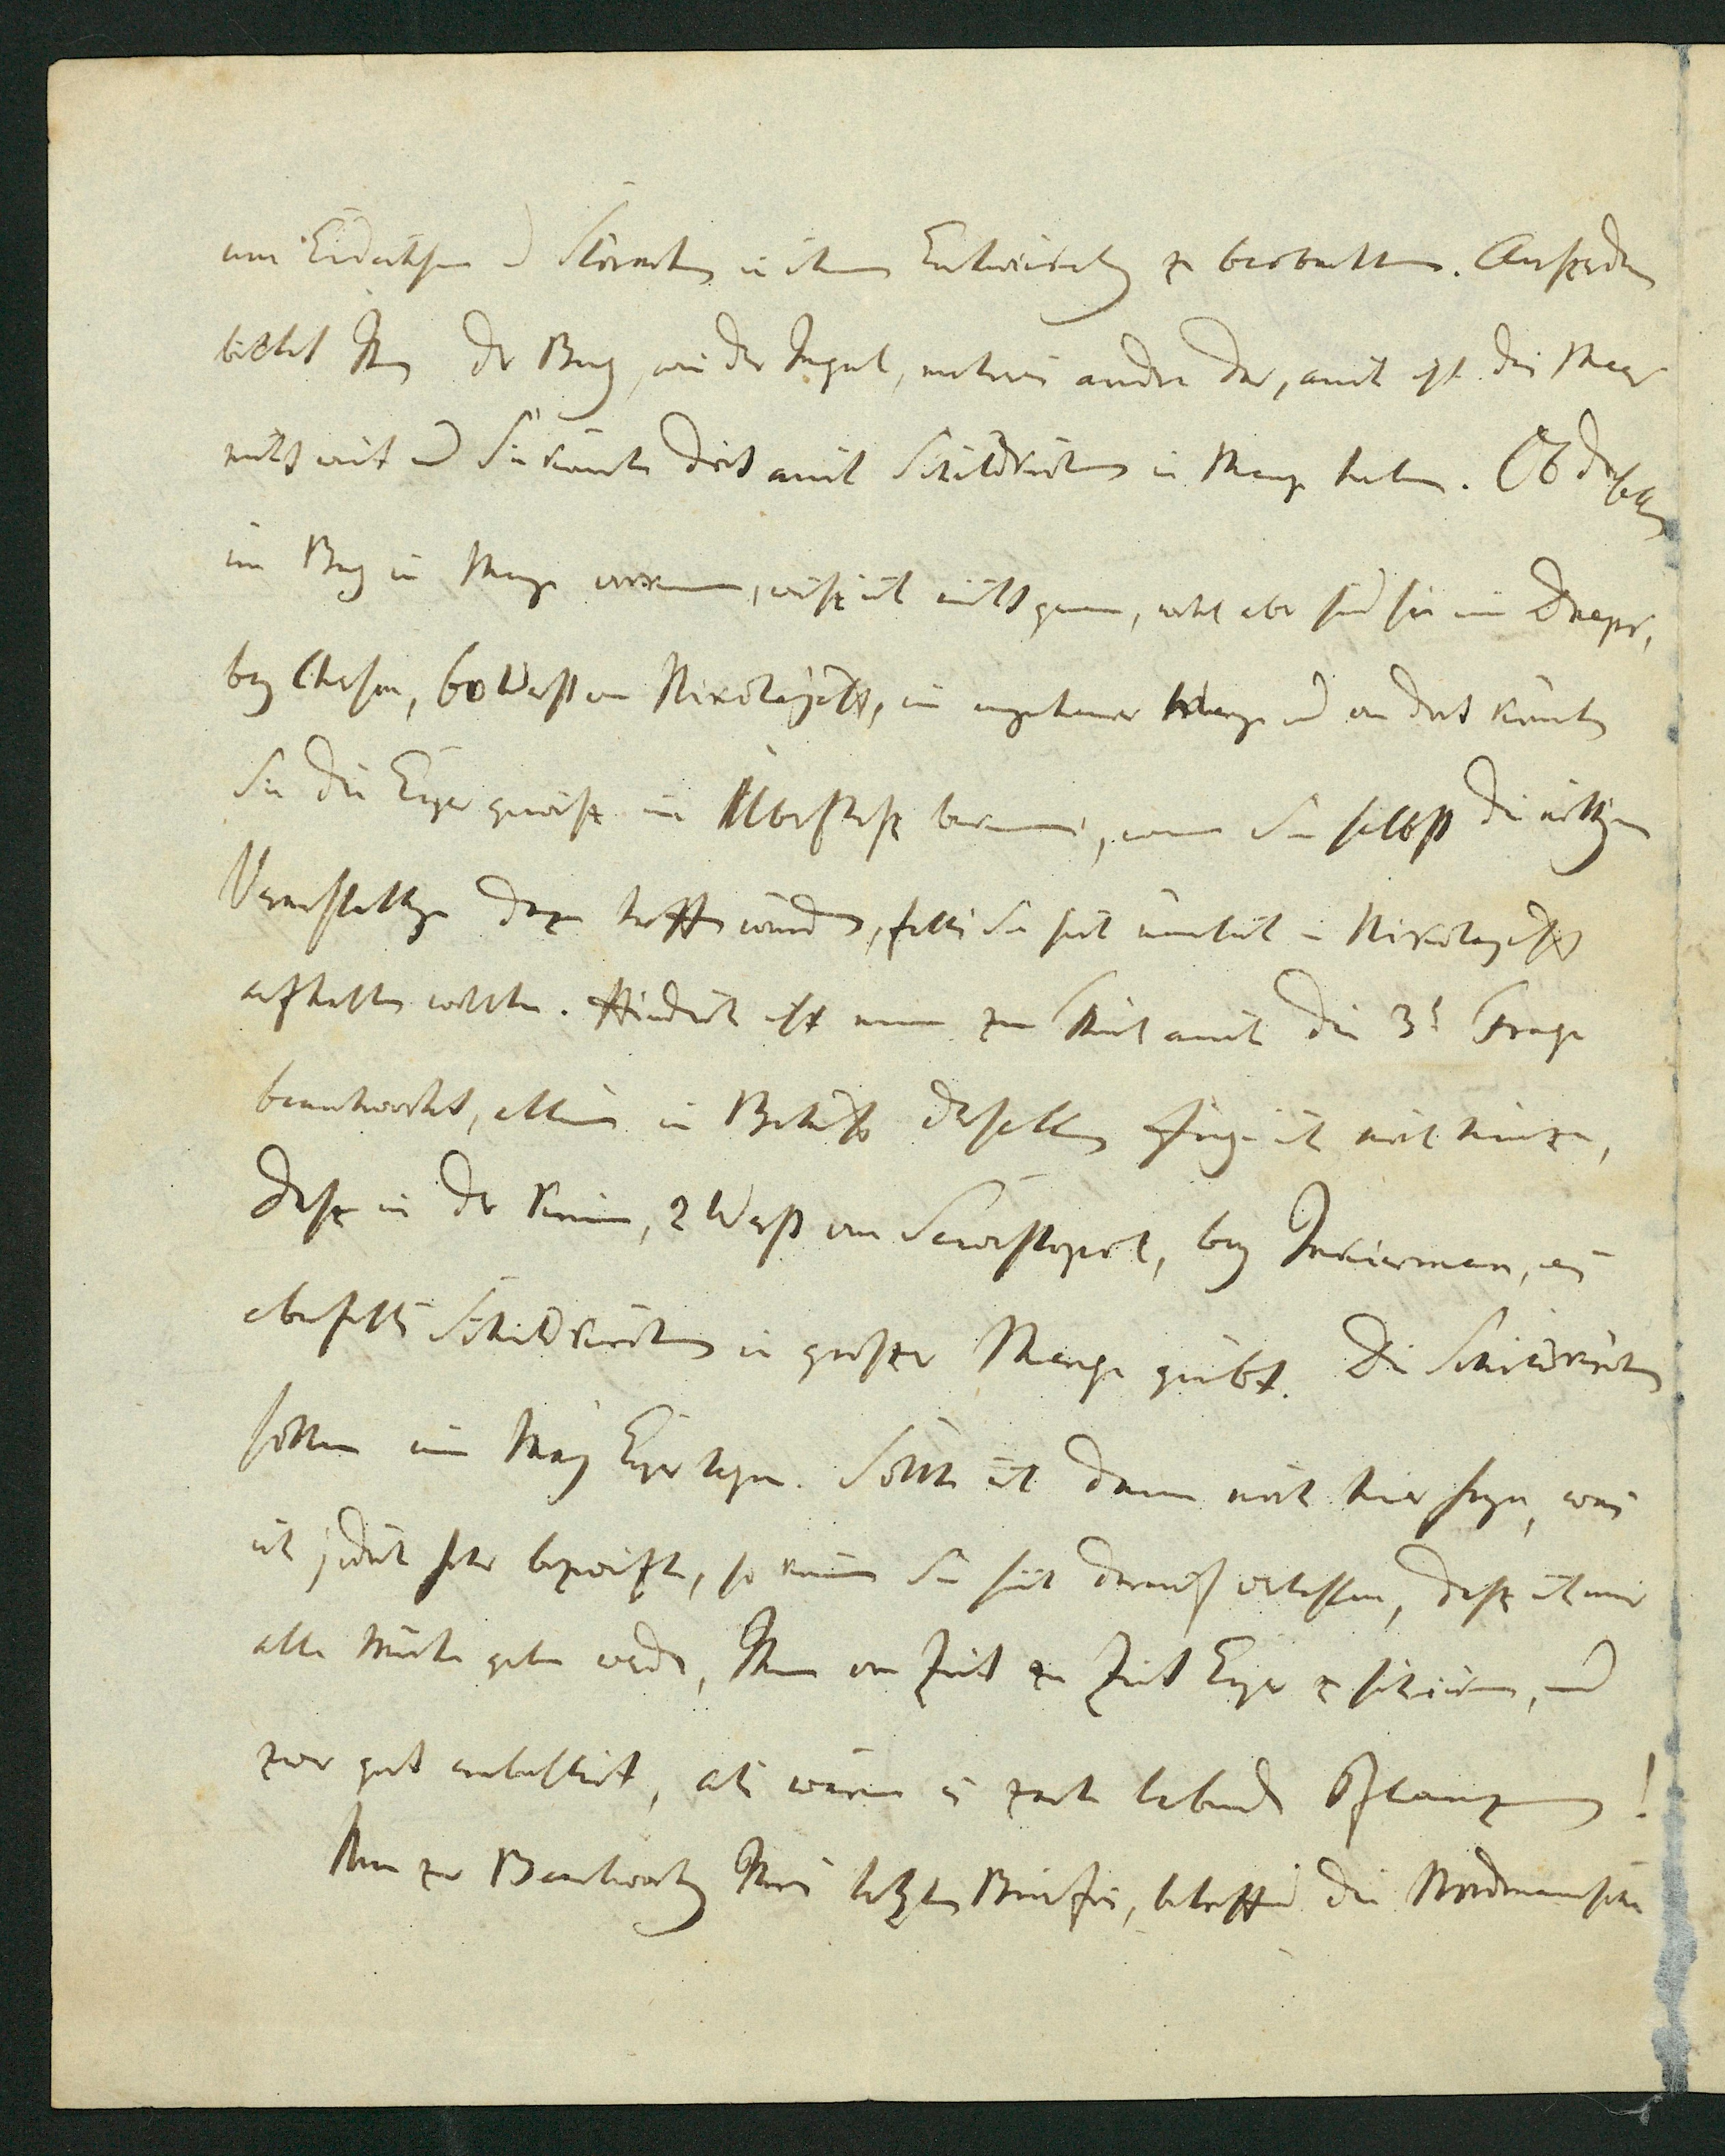 um Eidechsen u Störarten in ihrer Entwickelung zu beobachten. Außerdem
bietet Ihnen der Bug, wie der Ingul, mehreres andere dar, auch ist das Meer
nicht weit u Sie könnten dort auch Schildkröten in Menge haben. Ob dieselben
im Bug in Menge vorkommen, weiß ich nicht genau, wohl aber sind sie im Dnepr,
bey Cherson, 60 Werst von Nikolajeff, in ungeheurer Menge u von dort könnten
Sie die Eyer gewiß im Überfluß bekommen, wenn Sie selbst die nöthigen
Veranstaltungen dazu treffen würden, falls Sie sich wirklich in Nikolajeff
aufhalten wollten. Hiedurch ist nun zum Theil auch die 3t Frage
beantwortet, allein in Betreff derselben füge ich noch hinzu,
daß in der Krimm, 2 Werst von Sewastopol, bey Inkierman, es
ebenfalls Schildkröten in großer Menge giebt. Die Schildkröten
sollen im May Eyer legen. Sollte ich dann noch hier seyn, was
ich jedoch sehr bezweifle, so können Sie sich darauf verlassen, daß ich mir
alle Mühe geben werde, Ihnen von Zeit zu Zeit Eyer zu schicken, und
zwar gut emballirt, als wären es zarte lebende Pflanzen!
Nun zur Beantwortung Ihres letzten Briefes, betreffend die Nordmannsche